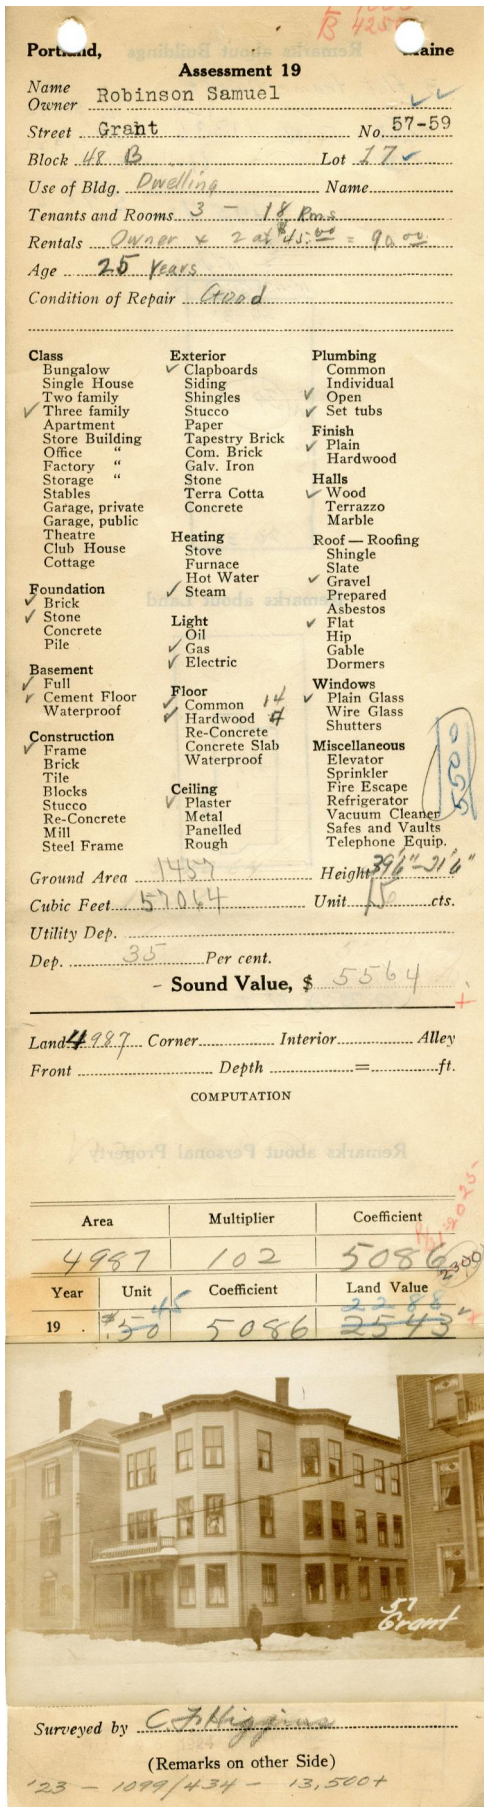 B 425
Portland, Maine
Assessment 19
Name
Owner Robinson Samuel
Street Grant No. 57-59
Block 48 B Lot 17
Use of Bldg. Dwelling Name
Tenants and Rooms 3 - 18 Rms
Rentals Owner + 2 at $45.00 = 90.00
Age 25 Years
Condition of Repair Good
Class
Bungalow
Single House
Two family
✓ Three family
Apartment
Store Building
Office "
Factory "
Storage "
Stables
Garage, private
Garage, public
Theatre
Club House
Cottage
Foundation
✓ Brick
✓ Stone
Concrete
Pile
Basement
✓ Full
✓ Cement Floor
Waterproof
Construction
✓ Frame
Brick
Tile
Blocks
Stucco
Re-Concrete
Mill
Steel Frame
Exterior
✓ Clapboards
Siding
Shingles
Stucco
Paper
Tapestry Brick
Com. Brick
Galv. Iron
Stone
Terra Cotta
Concrete
Heating
Stove
Furnace
Hot Water
✓ Steam
Light
Oil
✓ Gas
✓ Electric
Floor
✓ Common 14
✓ Hardwood 4
Re-Concrete
Concrete Slab
Waterproof
Ceiling
✓ Plaster
Metal
Panelled
Rough
Plumbing
Common
Individual
✓ Open
✓ Set tubs
Finish
✓ Plain
Hardwood
Halls
✓ Wood
Terrazzo
Marble
Roof — Roofing
Shingle
Slate
✓ Gravel
Prepared
Asbestos
✓ Flat
Hip
Gable
Dormers
Windows
✓ Plain Glass
Wire Glass
Shutters
Miscellaneous
Elevator
Sprinkler
Fire Escape
Refrigerator
Vacuum Cleaner
Safes and Vaults
Telephone Equip.
5500
Ground Area 1457 Height 39'6"-21'6"
Cubic Feet 57064 Unit 15 cts.
Utility Dep.
Dep. 35 Per cent.
- Sound Value, $ 5564
Land 4987 Corner Interior Alley
Front Depth = ft.
COMPUTATION
Area Multiplier Coefficient
4987 102 5086
2300
Year Unit Coefficient Land Value
45 2288
19 . $.50 5086 2543
57
Grant
Surveyed by C F Higgins
(Remarks on other Side)
'23 - 1099/434 - 13,500+